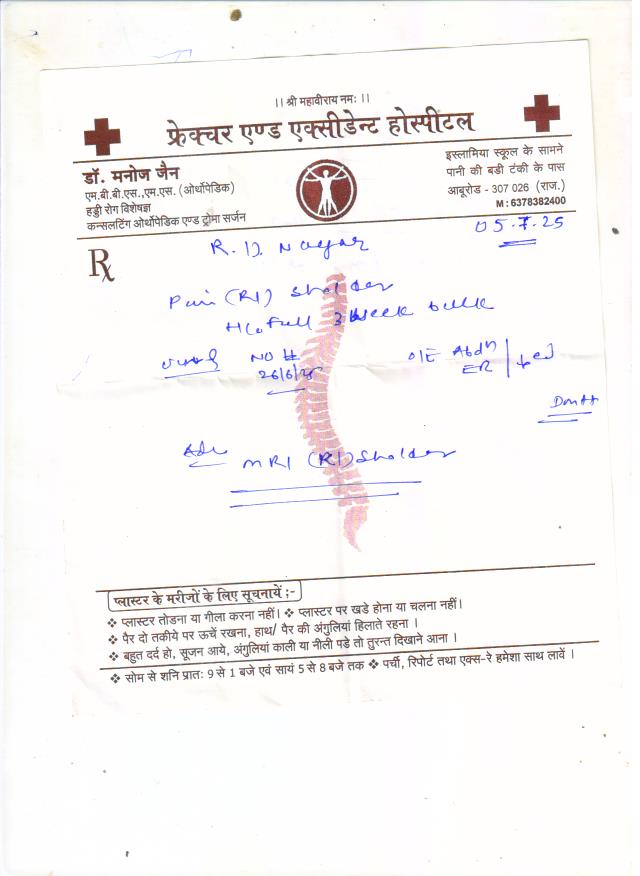 ।। श्री महावीराय नमः ।।
फ्रेक्चर एण्ड एक्सीडेन्ट होस्पीटल
डॉ. मनोज जैन
एम.बी.बी.एस.,एम.एस. (ओर्थोपेडिक)
हड्डी रोग विशेषज्ञ
कन्सलटिंग ओर्थोपेडिक एण्ड ट्रोमा सर्जन
इस्लामिया स्कूल के सामने
पानी की बडी टंकी के पास
आबूरोड - 307 026 (राज.)
M : 6378382400
05.7.25
Rx
R.D. Nagar
Pain (Rt) Sholder
H/o Fall 3 Week back
NO #
26/6/25
O/E Abdn
ER
Adv
MRI (Rt) Sholder
प्लास्टर के मरीजों के लिए सूचनायें :-
❖ प्लास्टर तोडना या गीला करना नहीं। ❖ प्लास्टर पर खडे होना या चलना नहीं।
❖ पैर दो तकीये पर ऊचें रखना, हाथ/ पैर की अंगुलियां हिलाते रहना ।
❖ बहुत दर्द हो, सूजन आये, अंगुलियां काली या नीली पडे तो तुरन्त दिखाने आना ।
❖ सोम से शनि प्रातः 9 से 1 बजे एवं सायं 5 से 8 बजे तक ❖ पर्ची, रिपोर्ट तथा एक्स-रे हमेशा साथ लावें ।